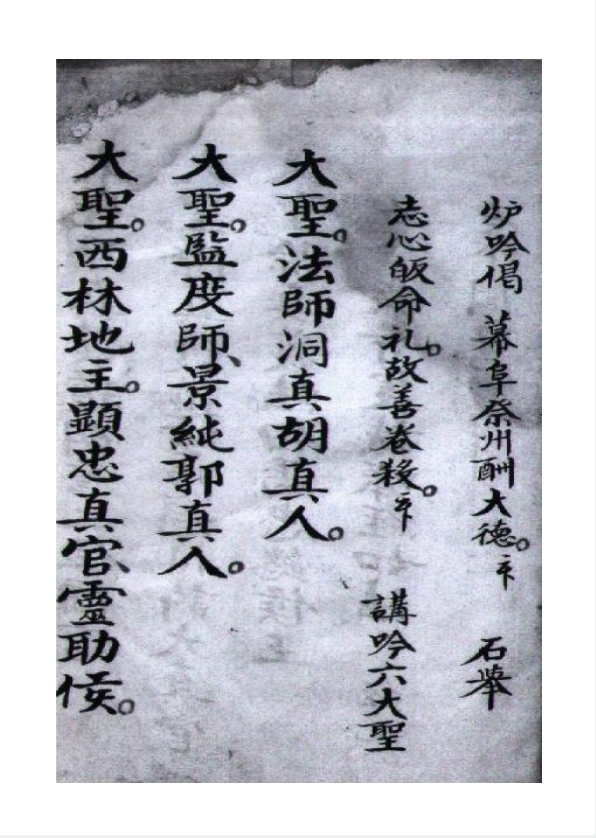 炉吟偈 幕阜祭州酬大德。 石举
志心皈命礼。故善卷殺。 講吟六大聖
大聖。法師洞真胡真人。
大聖。監度師、景純郭真人。
大聖。西林地主。顯忠真官、靈助侯。